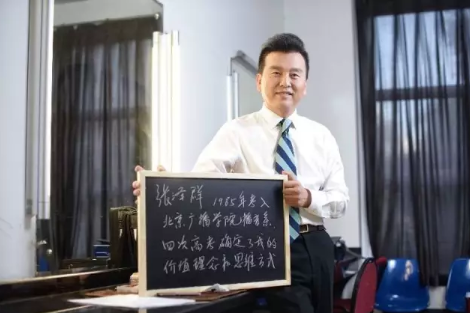 张泽群 1985年考入
北京广播学院播音系
四次高考确定了我的
价值理念和思维方式